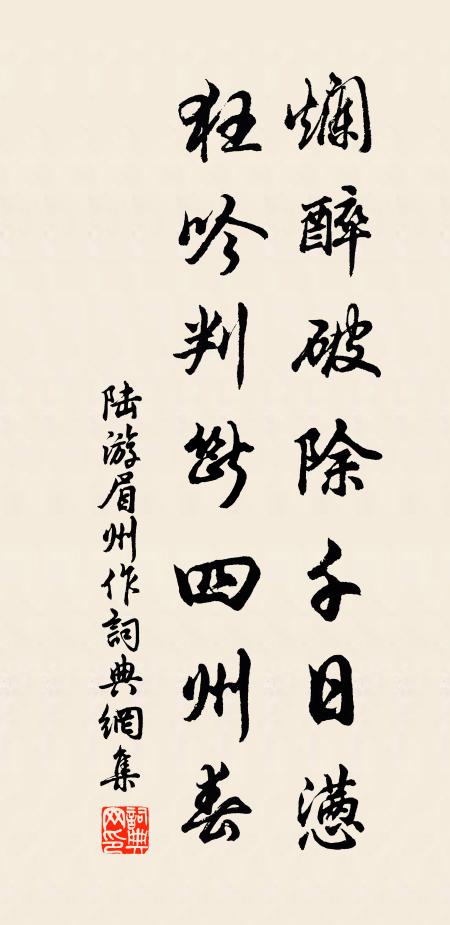 爛醉破除千日懣
狂吟判斷四州春
陸游眉州作詞典網集
詞典
网印